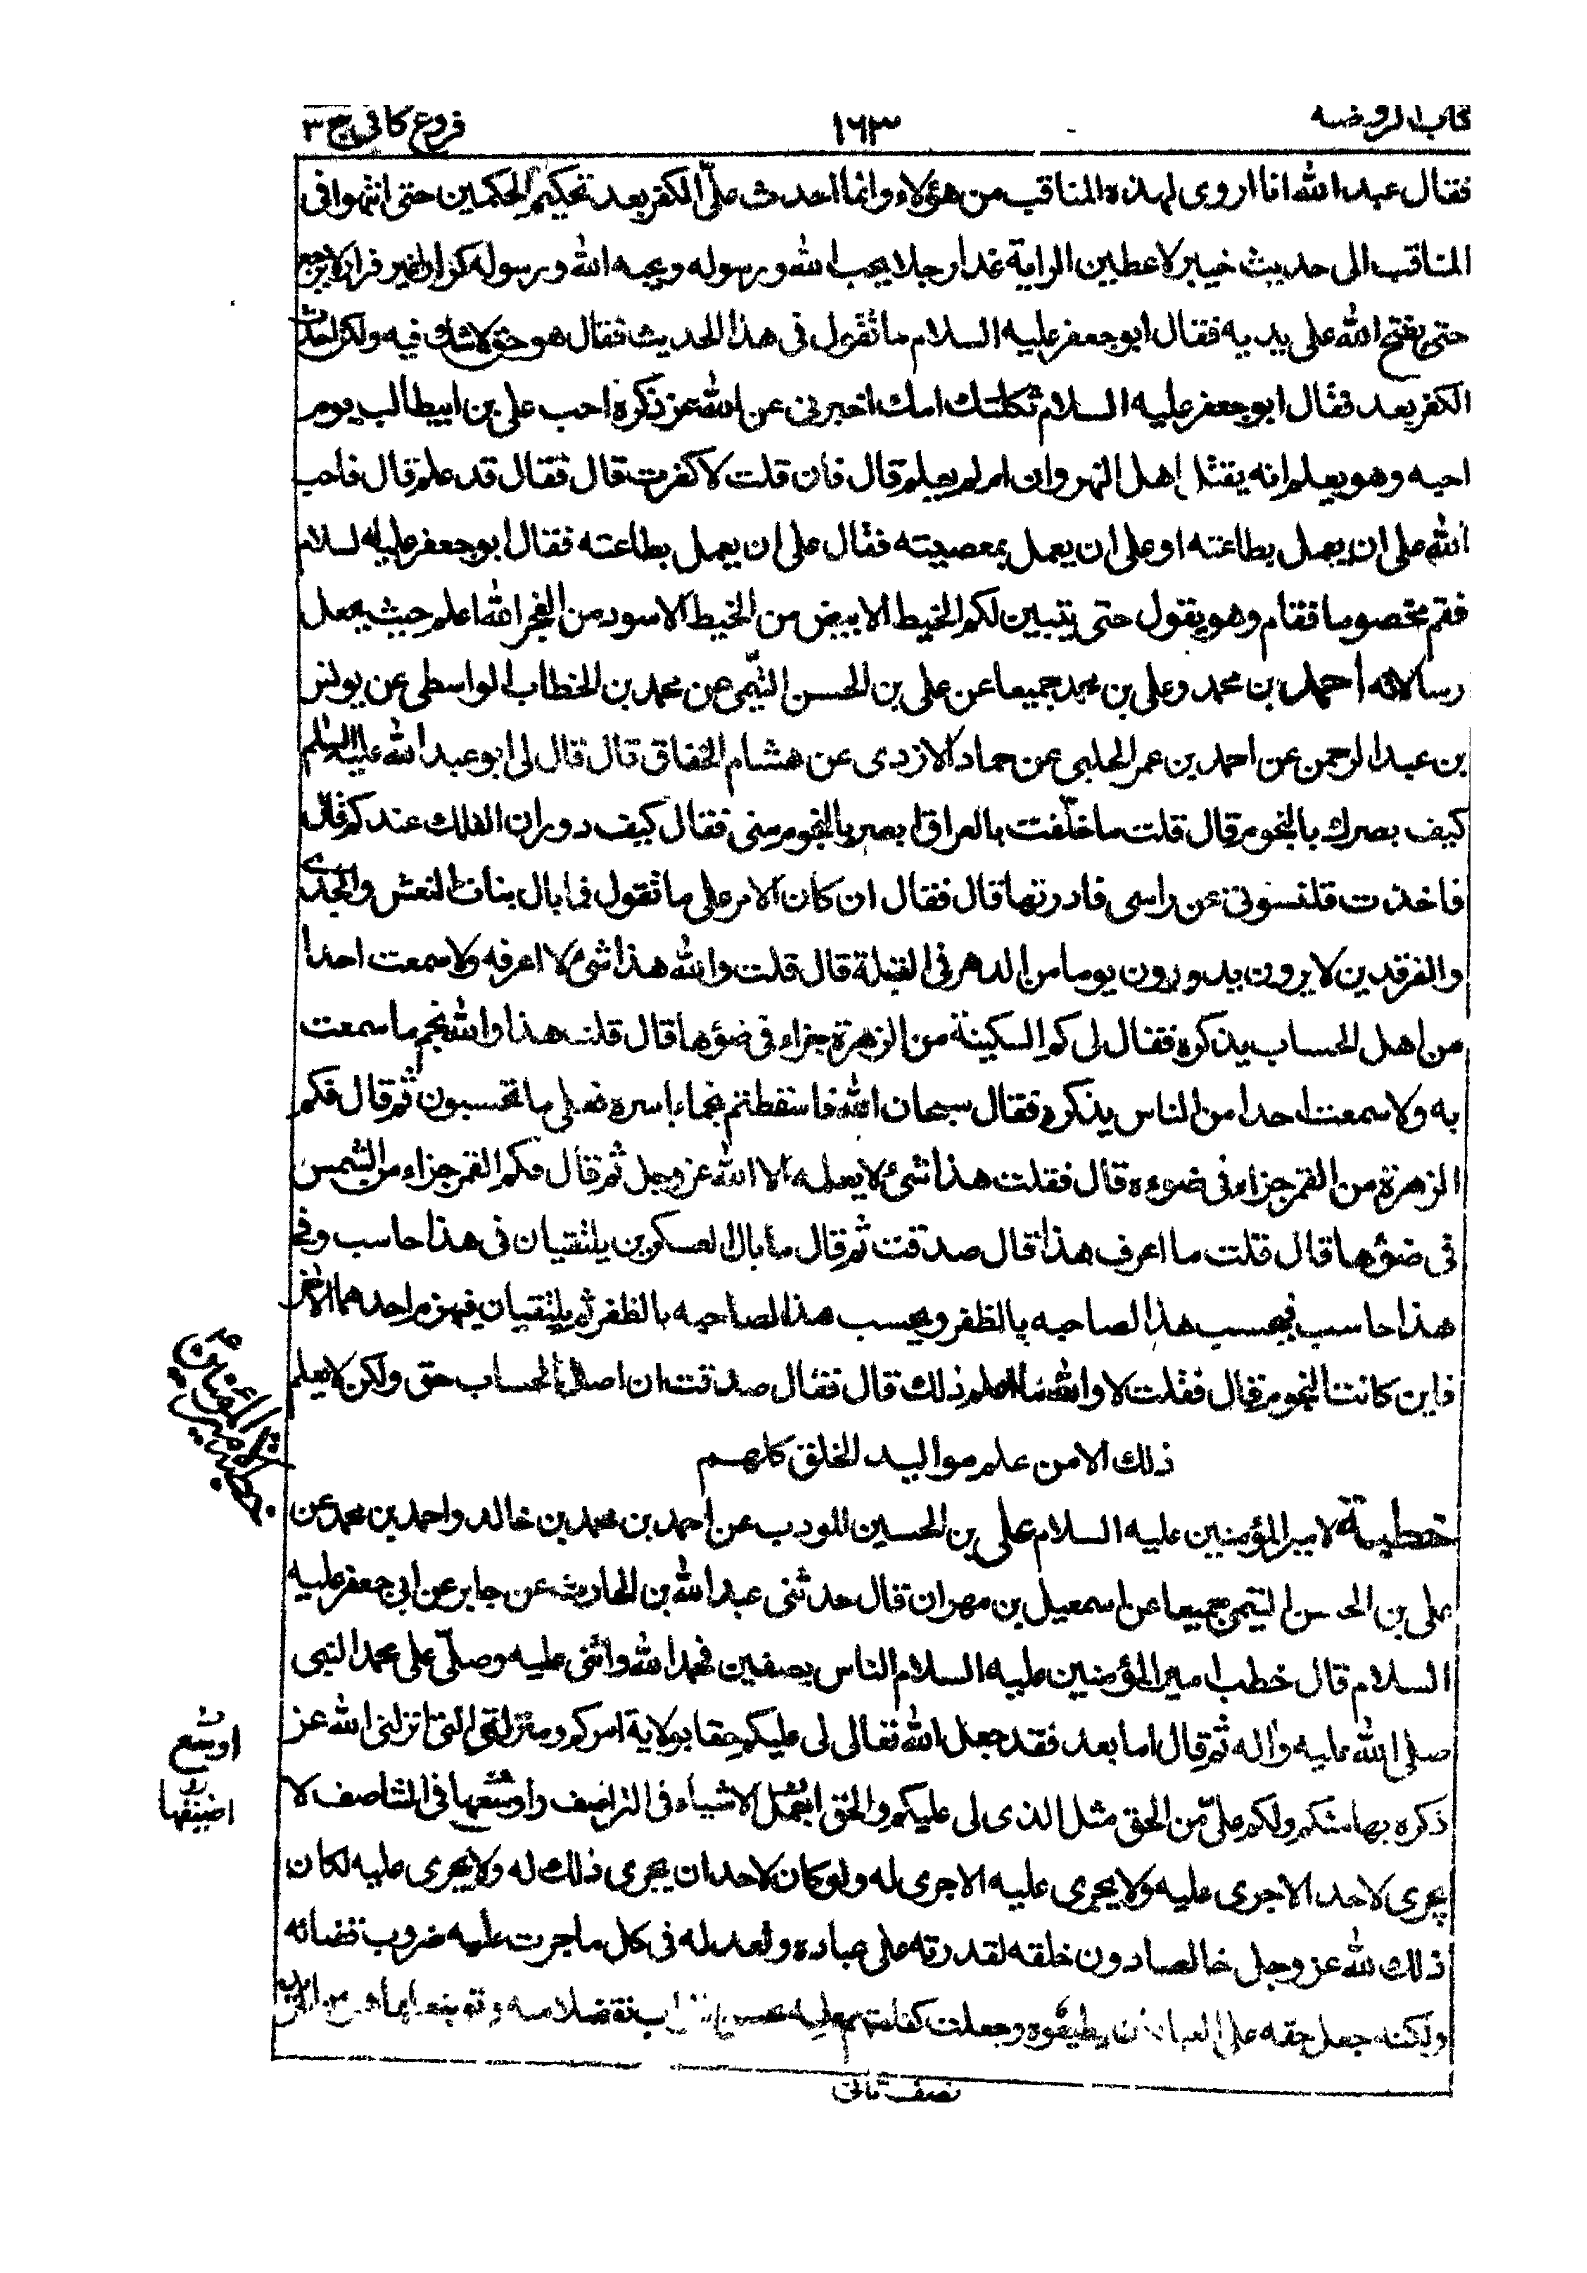 كتاب الروضه ١٦٣ فروع كافي ج ٣
فقال عبد الله انا اروى لهذه المناقب من هؤلاء وانما احدث علىّ الكفر بعد تحكيم الحكمين حتى انتهوا فى
المناقب الى حديث خيبر لاعطين الراية غدا رجلا يحب الله ورسوله ويحبه الله ورسوله كرار غير فرار لا يرجع
حتى يفتح الله على يديه فقال ابو جعفر عليه السلام ما تقول فى هذا الحديث فقال هو حق لا شك فيه ولكن احدث
الكفر بعد فقال ابو جعفر عليه السلام ثكلتك امك اخبرنى عن الله عز ذكره احب على بن ابيطالب يوم
احبه وهو يعلم انه يقتل اهل النهروان ام لم يعلم قال فان قلت لا كفرت قال فقال قد علم قال فاحبه
الله على ان يعمل بطاعته او على ان يعمل بمعصيته فقال على ان يعمل بطاعته فقال ابو جعفر عليه لسلام
فقم مخصوما فقام وهو يقول حتى يتبين لكم الخيط الابيض من الخيط الاسود من الفجر الله اعلم حيث يجعل
رسالاته احمد بن محمد وعلى بن محمد جميعا عن على بن الحسن التيمى عن محمد بن الخطاب الواسطى عن يونس
بن عبد الرحمن عن احمد بن عمر الحلبى عن حماد الازدى عن هشام الخفاق قال قال لى ابو عبد الله عليه السلم
كيف بصرك بالنجوم قال قلت ما خلّفت بالعراق ابصر بالنجوم منى فقال كيف دوران الفلك عندكم قال
فاخذت قلنسوتى عن راسى فادرتها قال فقال ان كان الامر على ما تقول فما بال بنات النعش والجدى
والفرقدين لا يرون يدورون يوما من الدهر فى القبلة قال قلت والله هذا شئ لا اعرفه ولا سمعت احدا
من اهل الحساب يذكره فقال لى كم السكينة من الزهرة جزاء فى ضؤها قال قلت هذا والله نجم ما سمعت
به ولا سمعت احدا من الناس يذكره فقال سبحان الله فاسقطتم نجما باسره فعلى ما تحسبون ثم قال فكم
الزهرة من القمر جزاء فى ضوءه قال فقلت هذا شئ لا يعلمه الا الله عز وجل ثم قال فكم القمر جزاء من الشمس
فى ضؤها قال قلت ما اعرف هذا قال صدقت ثم قال ما بال العسكرين يلتقيان فى هذا حاسب وفى
هذا حاسب فيحسب هذا لصاحبه بالظفر ويحسب هذا لصاحبه بالظفر ثم يلتقيان فيهزم احدهما الاخر
فاين كانت النجوم قال فقلت لا والله ما اعلم ذلك قال فقال صدقت ان اصل الحساب حق ولكن لا يعلم
ذلك الا من علم مواليد الخلق كلهم
خطبة لامير المؤمنين عليه السلام على بن الحسين المودب عن احمد بن محمد بن خالد واحمد بن محمد عن
على بن الحسن التيمى جميعا عن اسمعيل بن مهران قال حدثنى عبد الله بن الحارث عن جابر عن ابى جعفر عليه
السلام قال خطب امير المؤمنين عليه السلام الناس بصفين فحمد الله واثنى عليه وصلّى على محمد النبى
صلى الله عليه واله ثم قال اما بعد فقد جعل الله تعالى لى عليكم حقا بولاية امركم ومنزلتى التى انزلنى الله عز
ذكره بها منكم ولكم علىّ من الحق مثل الذى لى عليكم والحق اجمل الاشياء فى التراصف واوسعها فى التناصف لا
يجرى لاحد الا جرى عليه ولا يجرى عليه الا جرى له ولو كان لاحد ان يجرى ذلك له ولا يجرى عليه لكان
ذلك لله عز وجل خالصا دون خلقه لقدرته على عباده ولعدله فى كل ما جرت عليه ضروب قضائه
ولكنه جعل حقه على العباد ان يطيعوه وجعل
نصف ثانى
اوسع